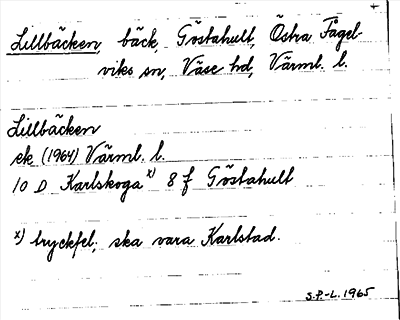 Lillbäcken, bäck, Göstahult, Östra Fågel-
viks sn, Väse hd, Värml. l.
Lillbäcken
ek (1964) Värml. l.
10 D Karlskoga x) 8 f Göstahult
x) tryckfel; ska vara Karlstad.
S.P.-L. 1965